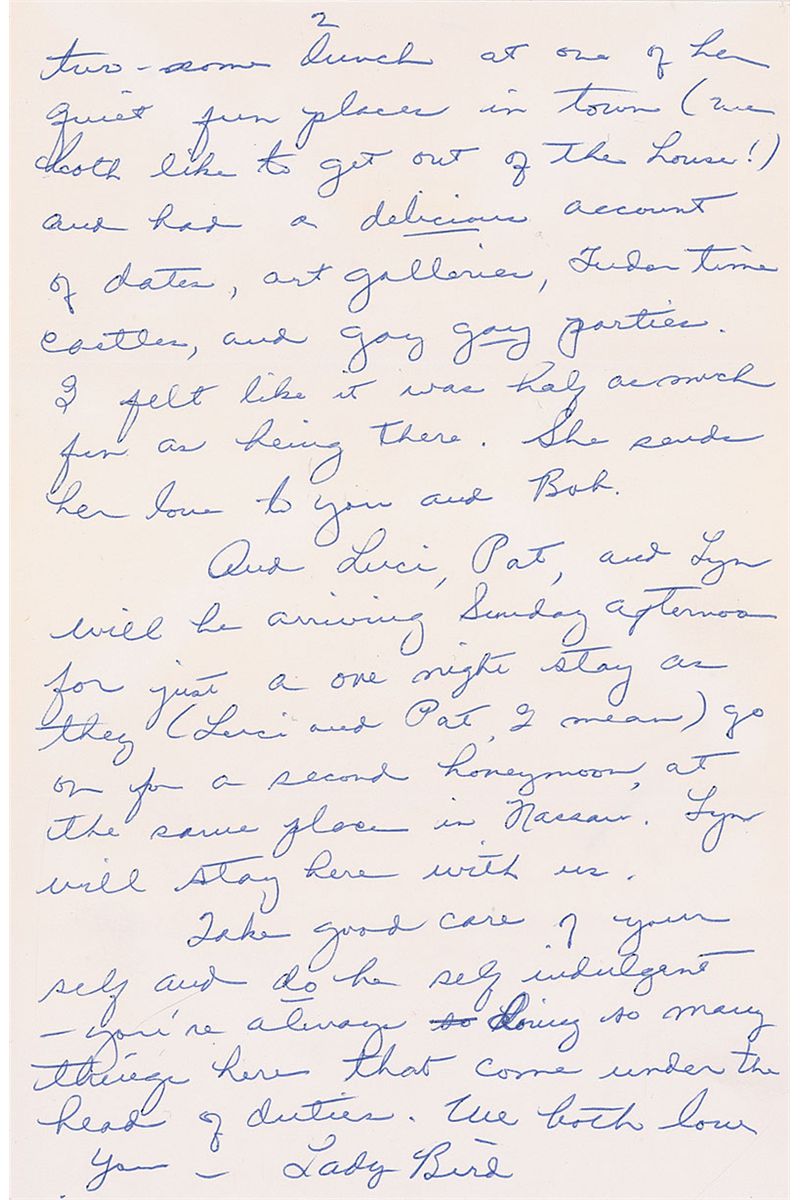 2
two-some lunch at one of her
quiet fun places in town (we
both like to get out of the house!)
and had a delicious account
of dates, art galleries, Tudor time
castles, and gay gay parties.
I felt like it was half as much
fun as being there. She sends
her love to you and Bob.
And Luci, Pat, and Lyn
will be arriving Sunday afternoon
for just a one night stay as
they (Luci and Pat, I mean) go
on for a second honeymoon, at
the same place in Nassau. Lyn
will stay here with us.
Take good care of your
self and do be self indulgent
— you're always so doing so many
things here that come under the
head of duties. We both love
You — Lady Bird